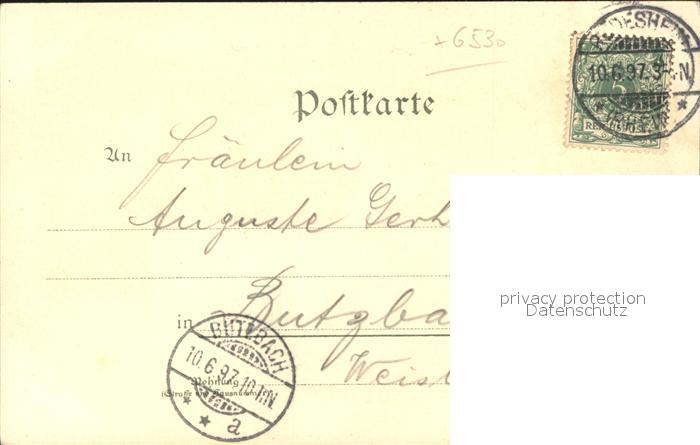 +6530
RÜDESHEIM
10.6.97.3-4N
* (RHEIN) *
5
REICHSPOST
Postkarte
An Fräulein
Auguste Gerh
privacy protection
Datenschutz
in Butzba
BUTZBACH
10.6.97.10-11N.
* * a
Wohnung
(Straße und Hausnummer)